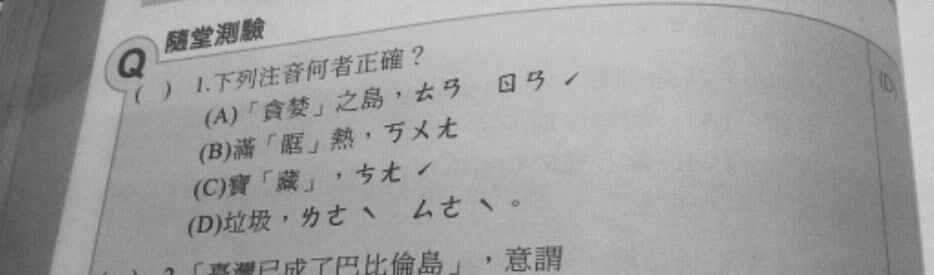 隨堂測驗
Q
( ) 1.下列注音何者正確？
(A)「貪婪」之島，ㄊㄢ ㄖㄢˊ
(B)滿「眶」熱，ㄎㄨㄤ
(C)寶「藏」，ㄘㄤˊ
(D)垃圾，ㄌㄜˋ ㄙㄜˋ。
( ) 2.「臺灣已成了巴比倫島」，意謂
(D)